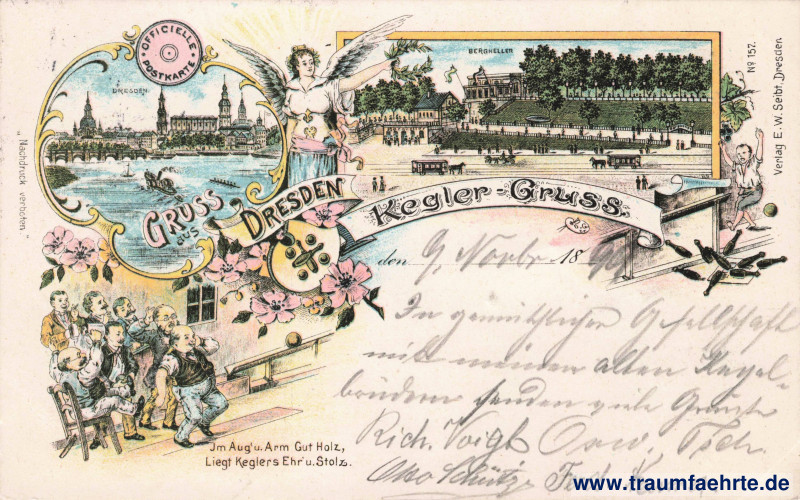 OFFICIELLE
POSTKARTE
DRESDEN.
BERGKELLER
No 157.
Verlag E. W. Seibt, Dresden.
„Nachdruck verboten"
GRUSS
aus
DRESDEN
Kegler-Gruss.
den 9. Novbr. 18
In gemüthlicher Gesellschaft
mit meinen alten Kegel-
brüdern senden viele Grüsse
Rich. Voigt
Otto Schütze
Jm Aug' u. Arm Gut Holz,
Liegt Keglers Ehr' u. Stolz.
www.traumfaehrte.de